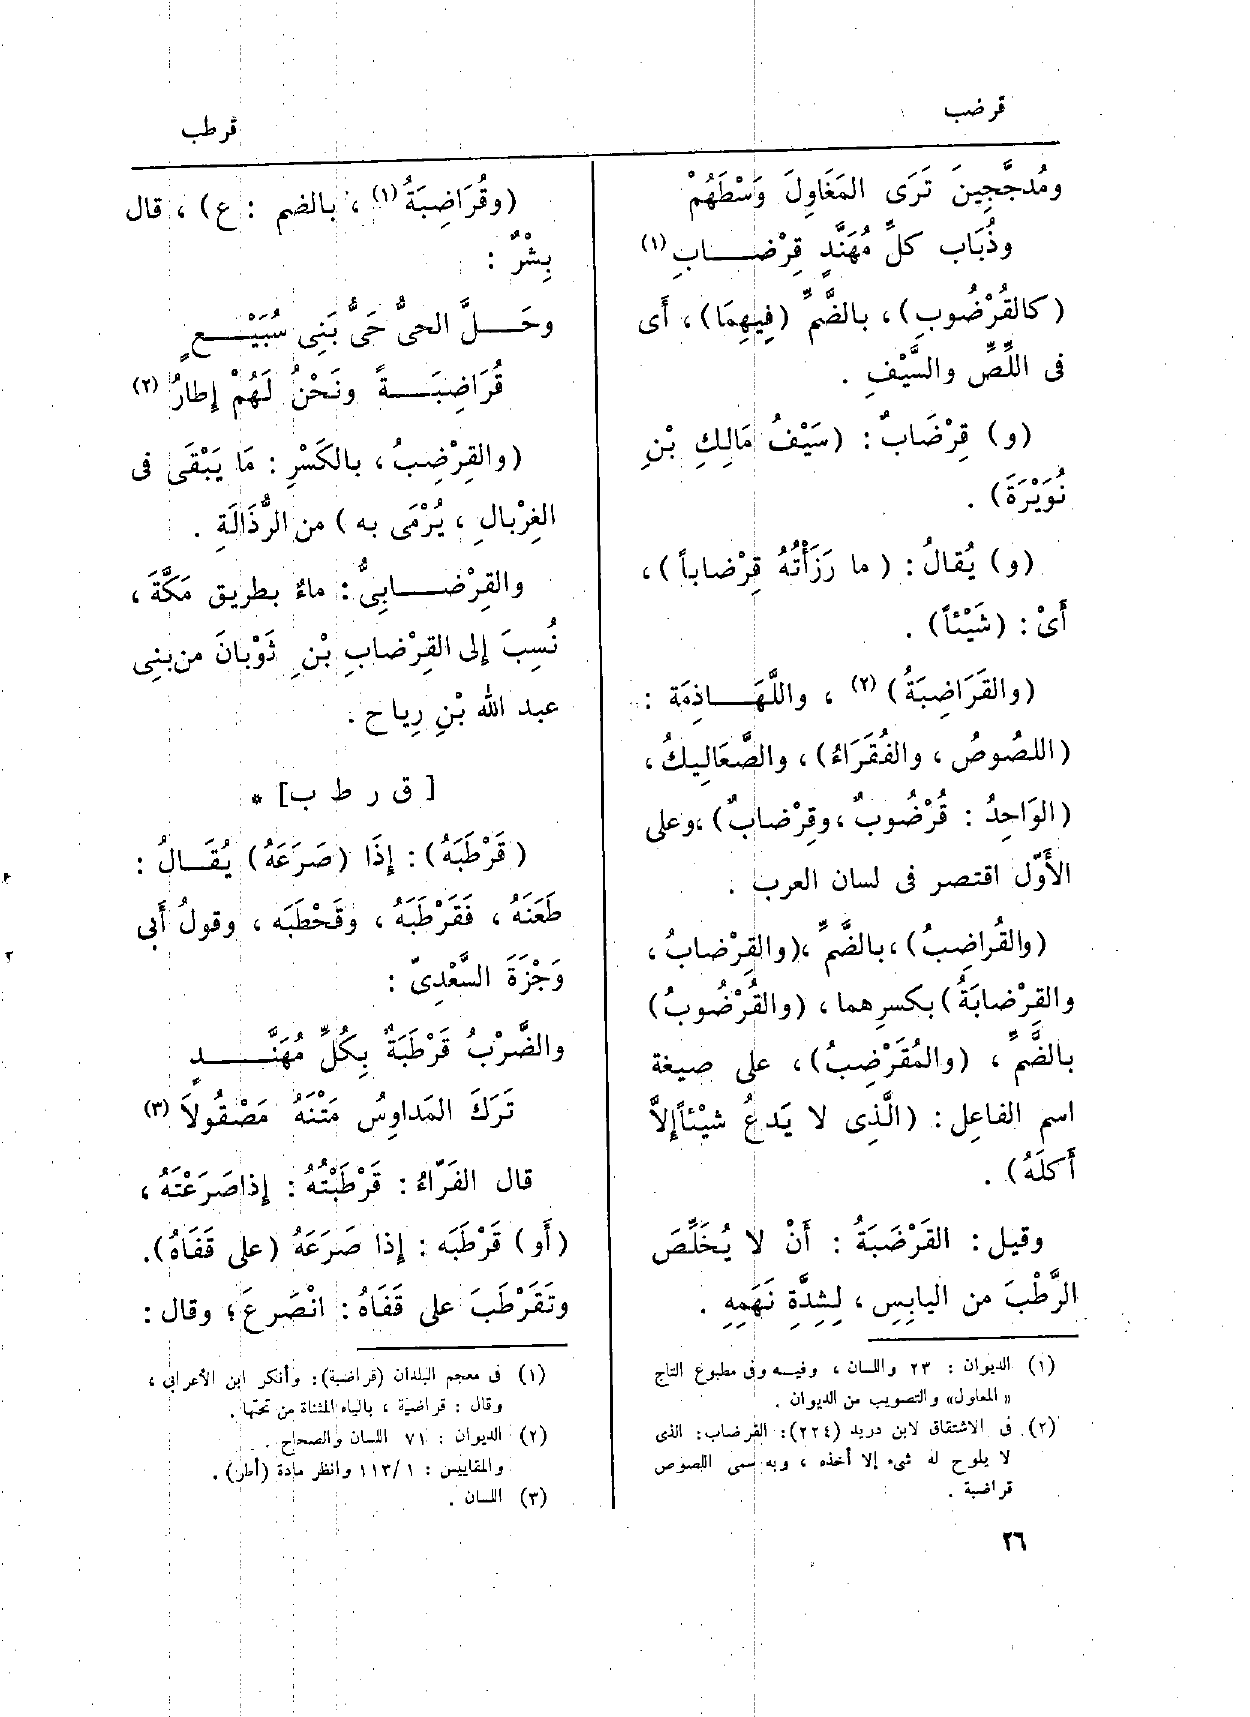 قرضب
قرطب
ومُدجَّجِينَ تَرَى المَغَاوِلَ وَسْطَهُمْ
وذُبَاب كلِّ مُهَنَّدٍ قِرْضــابِ (١)
(كالقُرْضُوبِ)، بالضَّمِّ (فِيهِمَا)، أَى
فى اللِّصِّ والسَّيْفِ .
(و) قِرْضَابٌ : (سَيْفُ مَالِكِ بْنِ
نُوَيْرَةَ) .
(و) يُقالُ : ( ما رَزَأْتُهُ قِرْضاباً )،
أَىْ : (شَيْئاً) .
(والقَرَاضِبَةُ) (٢) ، واللَّهَــاذِمَة :
(اللصُوصُ ، والفُقَرَاءُ)، والصَّعَالِيكُ،
(الوَاحِدُ : قُرْضُوبٌ ، وقِرْضابٌ) ،وعلى
الأَوّل اقتصر فى لسان العرب .
(والقُراضِبُ)، بالضَّمِّ ،(والقِرْضابُ،
والقِرْضابَةُ) بكسرِهما ، (والقُرْضُوبُ)
بالضَّمِّ ، (والمُقَرْضِبُ)، على صيغة
اسم الفاعِل : (الَّذِى لا يَدعُ شيْئاً إِلاَّ
أَكلَهُ) .
وقيل : القَرْضَبَةُ : أَنْ لا يُخَلِّصَ
الرَّطْبَ من اليابِسِ ، لِشِدَّةِ نَهَمِهِ .
(١) الديوان : ٢٣ واللسان ، وفيه وفى مطبوع التاج
« المعاول» والتصويب من الديوان .
(٢) فى الاشتقاق لابن دريد (٢٢٤): القرضاب: الذى
لا يلوح له شىء إلا أخذه ، وبه سمى اللصوص
قراضبة .
٢٦
(وقُرَاضِبَةُ (١) ، بالضم : ع) ، قال
بِشْرٌ :
وحَــلَّ الحىُّ حَىُّ بَنِى سُبَيْــعٍ
قُرَاضِبَــةً ونَحْنُ لَهُمْ إِطارُ (٢)
(والقِرْضِبُ ، بالكَسْرِ : مَا يَبْقَى فى
الغِرْبالِ ، يُرْمَى به ) من الرُّذَالَةِ .
والقِرْضــابِىُّ : ماءٌ بطريق مَكَّةَ ،
نُسِبَ إِلى القِرْضابِ بْنِ ثَوْبَانَ من بنِى
عبد الله بْنِ رِياح .
[ ق ر ط ب] *
(قَرْطَبَهُ) : إِذَا (صَرَعَهُ) يُقَــالُ :
طَعَنَهُ ، فَقَرْطَبَهُ ، وقَحْطَبَه ، وقولُ أَبى
وَجْزَةَ السَّعْدِىّ :
والضَّرْبُ قَرْطَبَةٌ بِكُلِّ مُهَنَّــدٍ
تَرَكَ المَداوِسُ مَتْنَهُ مَصْقُولاَ (٣)
قال الفَرّاءُ : قَرْطَبْتُهُ : إِذا صَرَعْتَهُ ،
(أَو) قَرْطَبَه : إِذا صَرَعَهُ (على قَفَاهُ).
وتَقَرْطَبَ على قَفَاهُ : انْصَرعَ ؛ وقال :
(١) فى معجم البلدان (قراضبة): وأنكر ابن الأعرابى ،
وقال : قراضية ، بالياء المثناة من تحتها .
(٢) الديوان : ٧١ اللسان والصحاح .
والمقاييس : ١ /١١٣ وانظر مادة (أطر) .
(٣) اللسان .